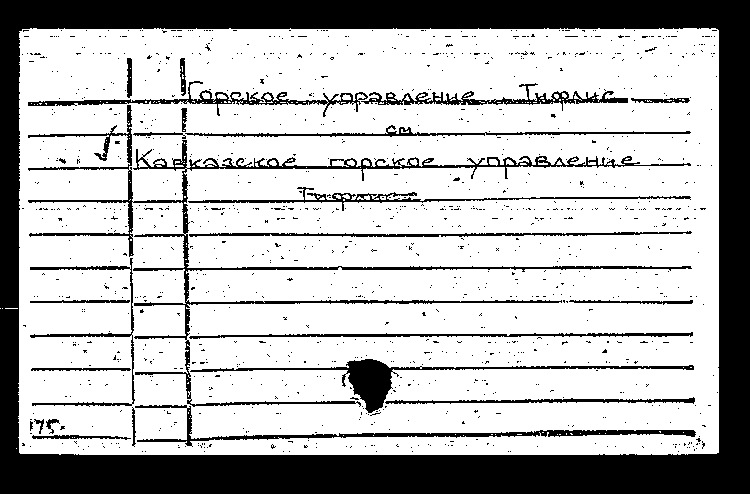 Горское управление Тифлис
см.
Кавказское горское управление
Тифлис
175.